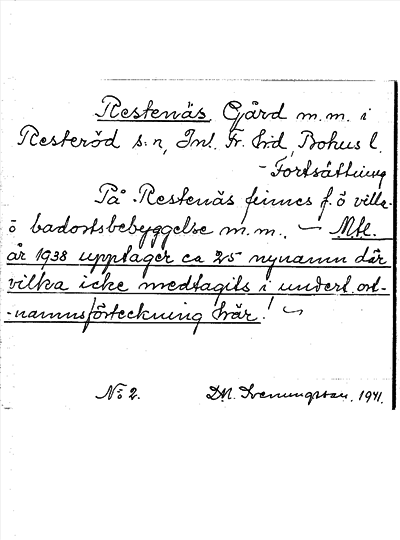 Restenäs Gård m.m. i
Resteröd s:n, Inl. Fr. hd, Bohus l.
- Fortsättning
På Restenäs finnes f.ö villa-
o badortsbebyggelse m.m. — Mtl.
år 1938 upptager ca 25 nynamn där
vilka icke medtagits i underl. ort-
-namnsförteckning här!
No 2. D.N. Svenungsson, 1941.